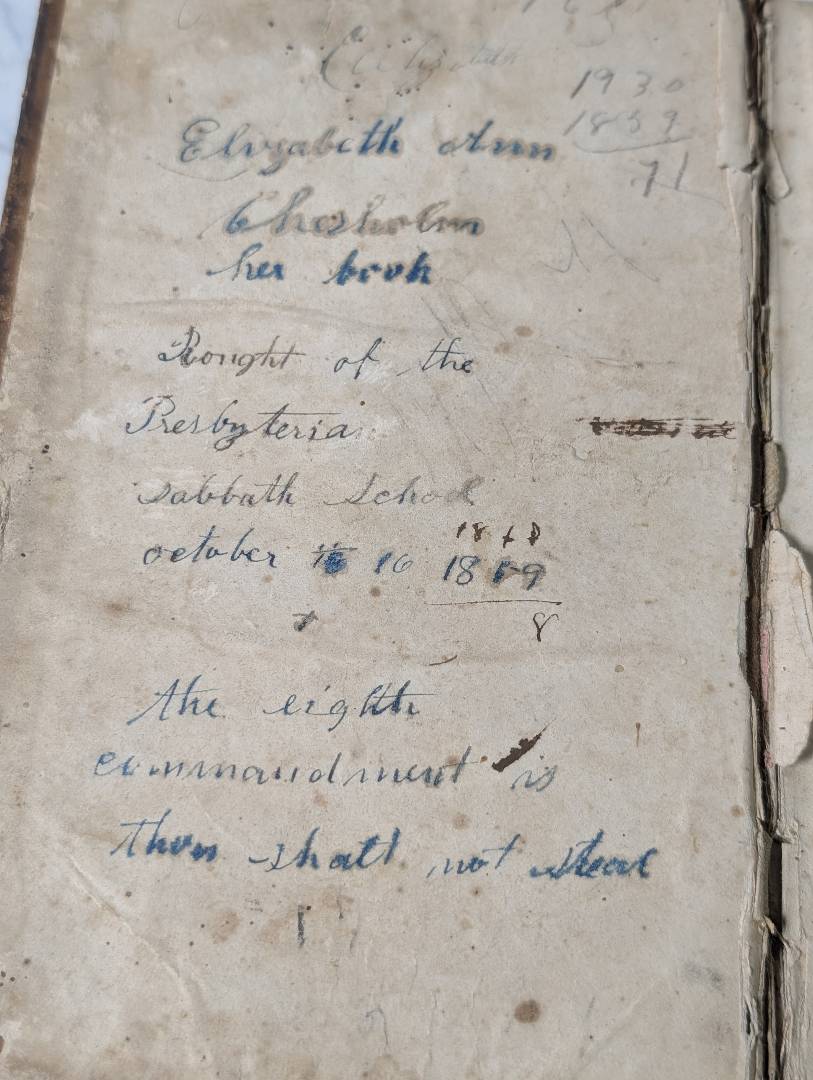 1930
1859
71
Elizabeth Ann
Chesholm
her book
Bought of the
Presbyteria
sabbath school
18
october 16 1859
8
the eighth
commandment is
thou shall not steal